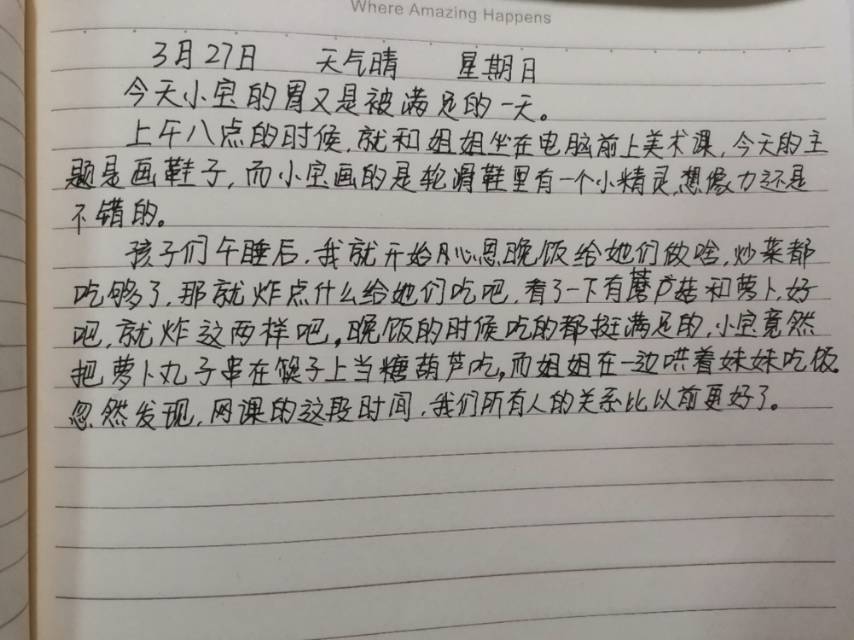 Where Amazing Happens
3月27日 天气晴 星期日
今天小宝的胃又是被满足的一天。
上午八点的时候,就和姐姐坐在电脑前上美术课,今天的主
题是画鞋子,而小宝画的是轮滑鞋里有一个小精灵,想像力还是
不错的。
孩子们午睡后,我就开始心思晚饭给她们做啥,炒菜都
吃够了,那就炸点什么给她们吃吧,看了一下有蘑菇和萝卜,好
吧,就炸这两样吧。晚饭的时候吃的都挺满足的,小宝竟然
把萝卜丸子串在筷子上当糖葫芦吃,而姐姐在一边哄着妹妹吃饭。
忽然发现,网课的这段时间,我们所有人的关系比以前更好了。